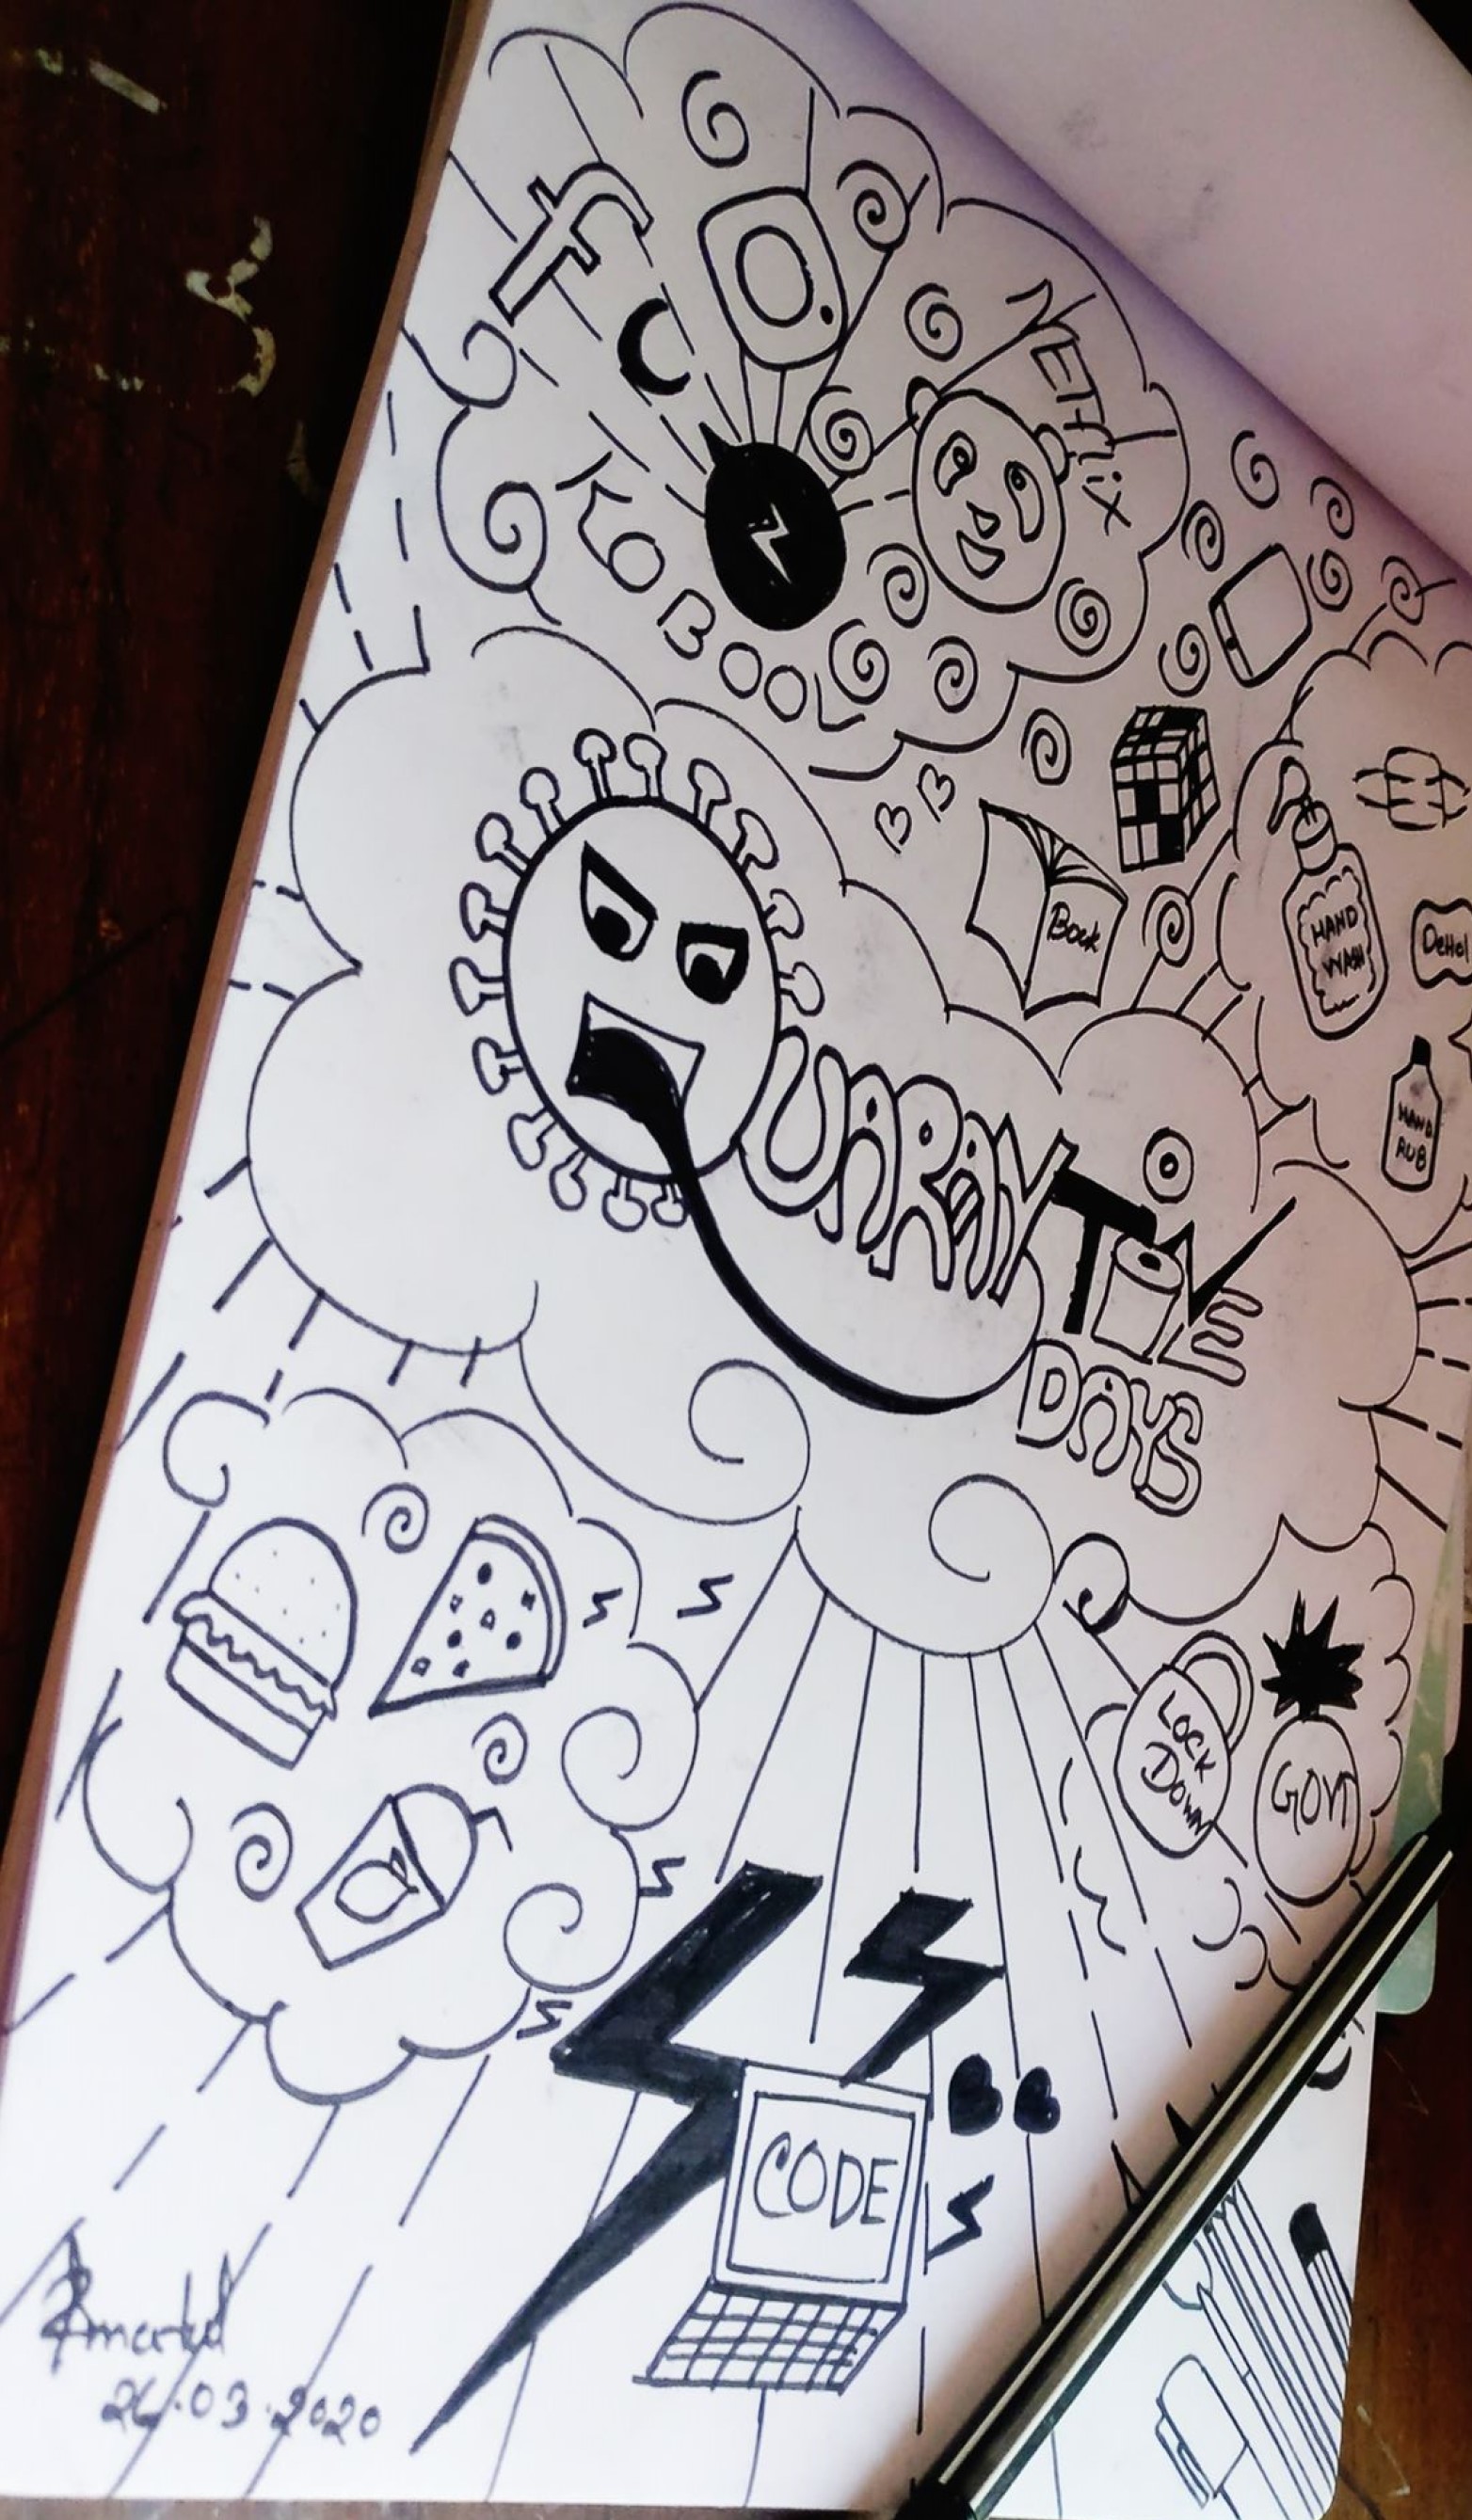 f
NETflix
KOBOOL
Book
HAND
WASH
Dettol
HAND
RUB
QUARANTINE
DAYS
LOCK
DOWN
GOVT
CODE
26.03.2020